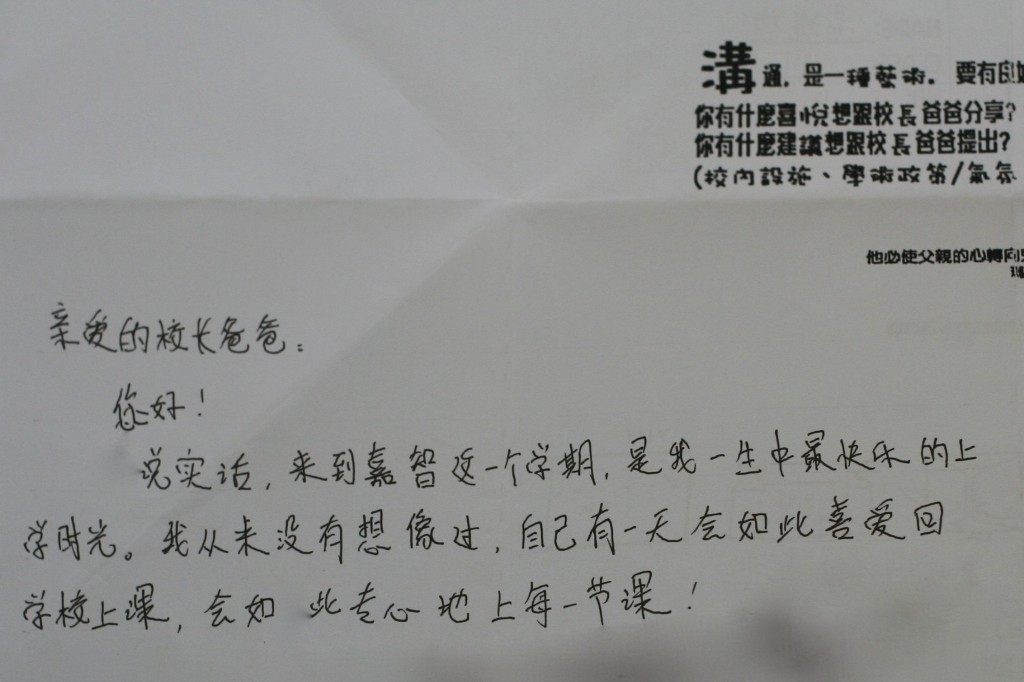 溝通，是一種藝術。要有良
你有什麼喜悅想跟校長爸爸分享？
你有什麼建議想跟校長爸爸提出？
(校內設施、學術政策/氣氛
他必使父親的心轉向
亲爱的校长爸爸：
您好！
说实话，来到嘉智这一个学期，是我一生中最快乐的上
学时光。我从来没有想像过，自己有一天会如此喜爱回
学校上课，会如此专心地上每一节课！